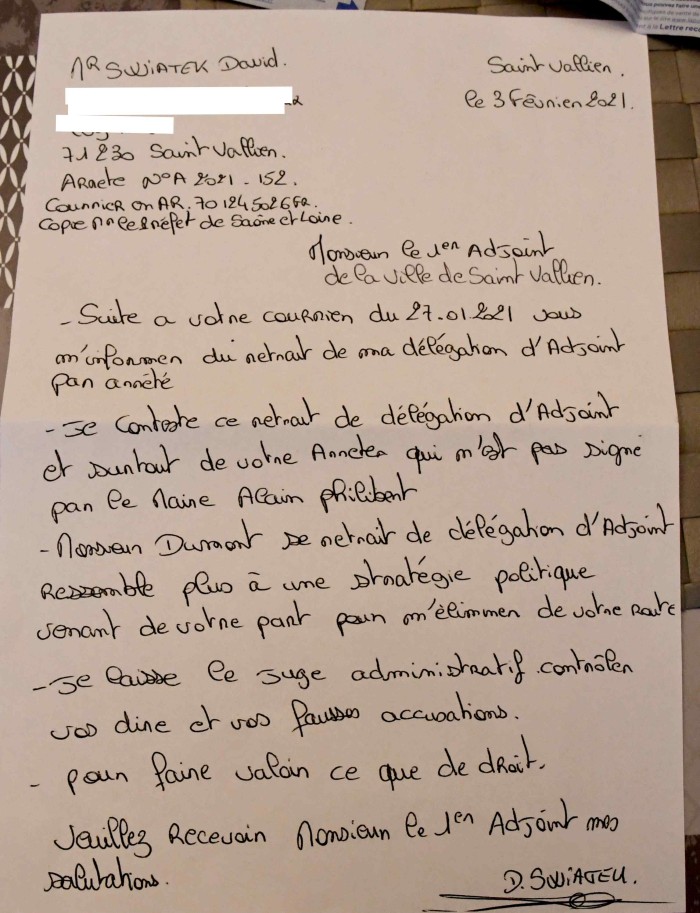 MR SWiATEK David.
Saint Vallier.
le 3 Février 2021.
71230 Saint Vallier.
ARRete N°A 2021-152.
Courrier en AR.
Copie Mr le Préfet de Saône et Loire.
Monsieur le 1er Adjoint
de la ville de Saint Vallier.
- Suite a votre courrier du 27.01.2021 vous
m'informer du retrait de ma délégation d'Adjoint
par arrêté
- Je Conteste ce retrait de délégation d'Adjoint
et surtout de votre Arreter qui n'est pas signé
par le Maire Alain philibert
- Monsieur Dumont se retrait de délégation d'Adjoint
Ressemble plus à une stratégie politique
venant de votre part pour m'élimmer de votre Route
- Je laisse le juge administratif contrôler
vos dire et vos fausses accusations.
- pour faire valoir ce que de droit.
Veuillez Recevoir Monsieur le 1er Adjoint mes
salutations.
D. SWiATEK.
Lettre reco